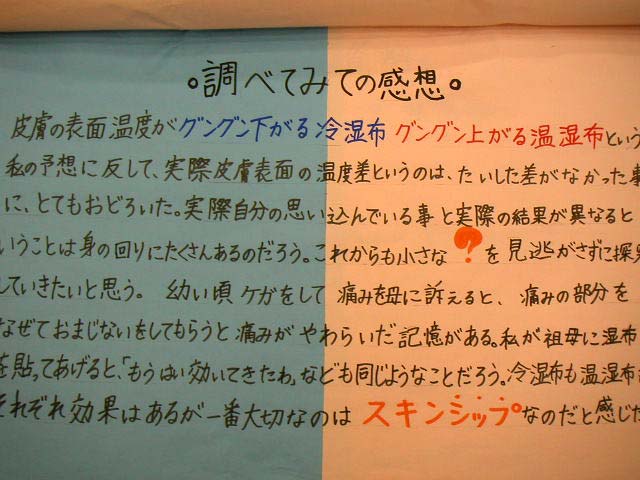 。調べてみての感想。
皮膚の表面温度がグングン下がる冷湿布 グングン上がる温湿布という
私の予想に反して、実際皮膚表面の温度差というのは、たいした差がなかった事
に、とてもおどろいた。実際自分の思い込んでいる事と実際の結果が異なると
いうことは身の回りにたくさんあるのだろう。これからも小さな?を見逃がさずに探究
していきたいと思う。 幼い頃ケガをして 痛みを母に訴えると、痛みの部分を
なぜておまじないをしてもらうと痛みがやわらいだ記憶がある。私が祖母に湿布
を貼ってあげると、「もうはい効いてきたわ。」なども同じようなことだろう。冷湿布も温湿布
それぞれ効果はあるが一番大切なのは スキンシップなのだと感じた